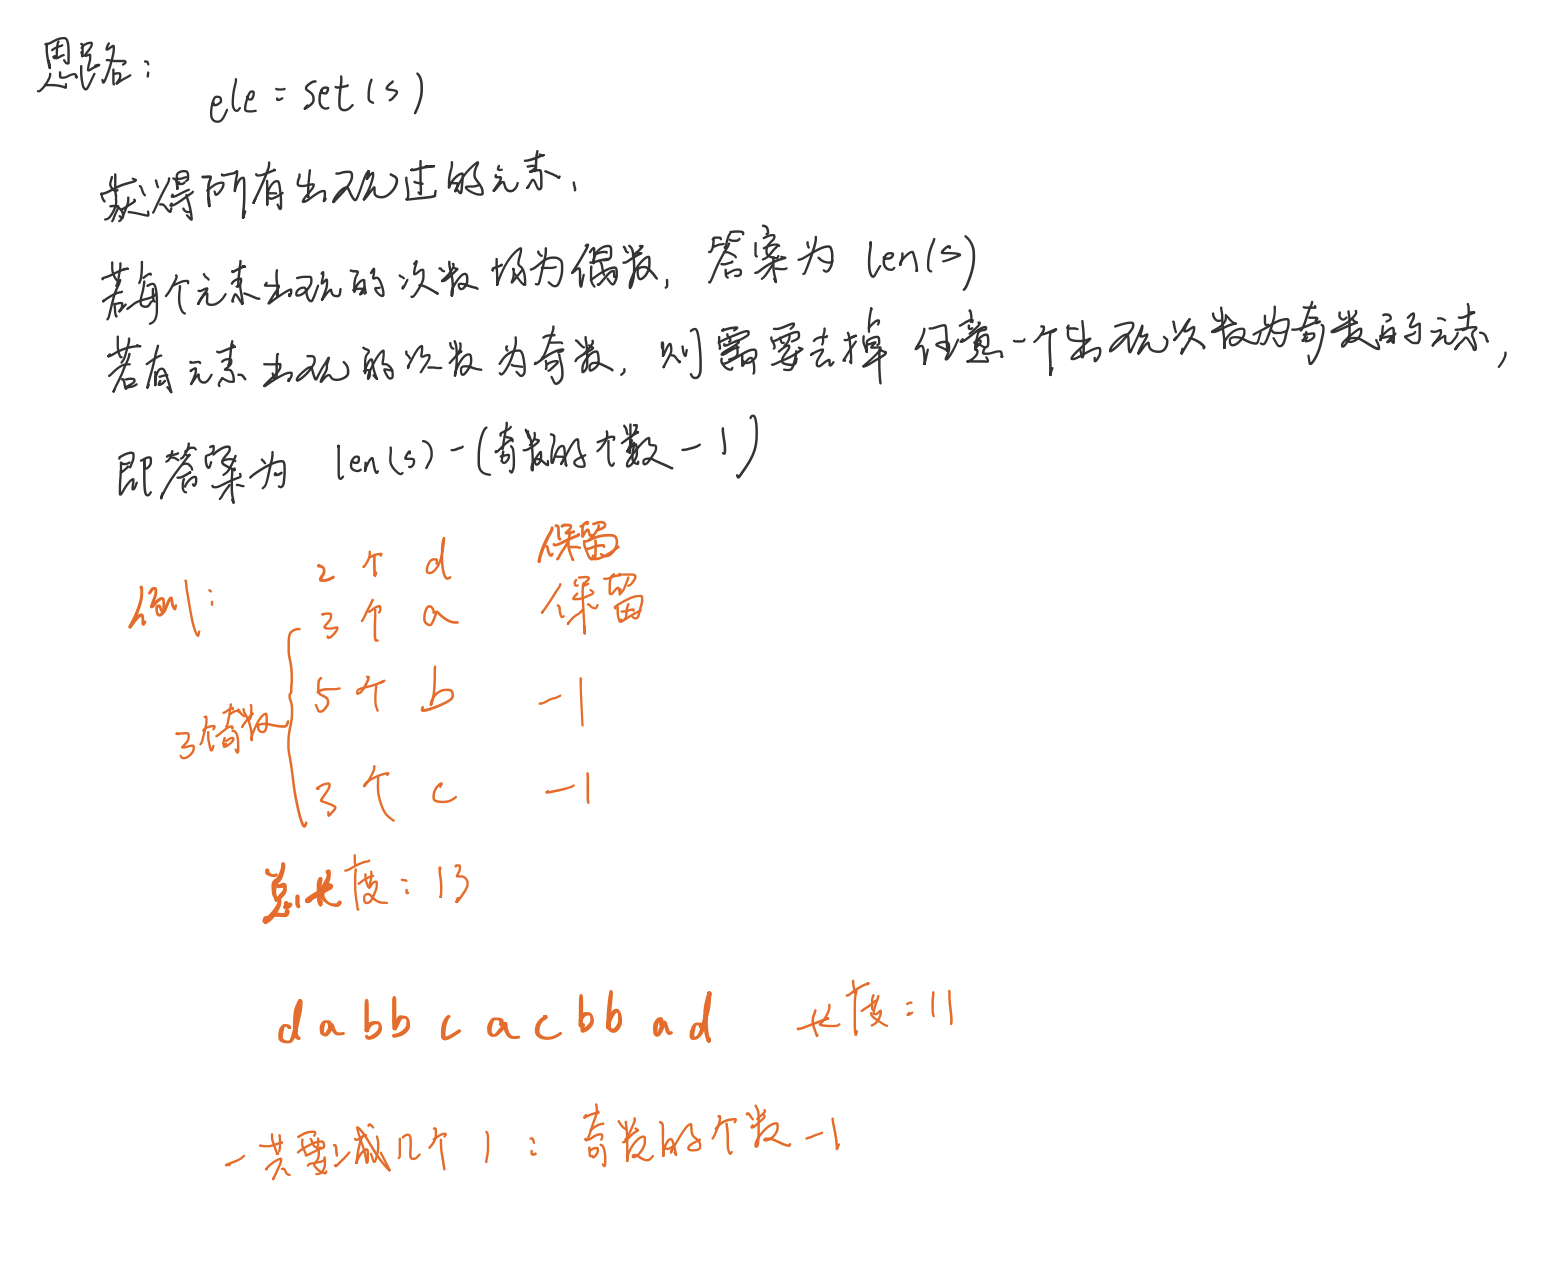 思路：
ele = set(s)
获得所有出现过的元素，
若每个元素出现的次数均为偶数，答案为 len(s)
若有元素出现的次数为奇数，则需要去掉 任意一个出现次数为奇数的元素，
即答案为 len(s) - (奇数的个数 - 1)
例：
2 个 d 保留
3 个 a 保留
5 个 b -1
3个奇数
3 个 c -1
总长度：13
d a b b c a c b b a d 长度：11
一共要减几个 1：奇数的个数 -1